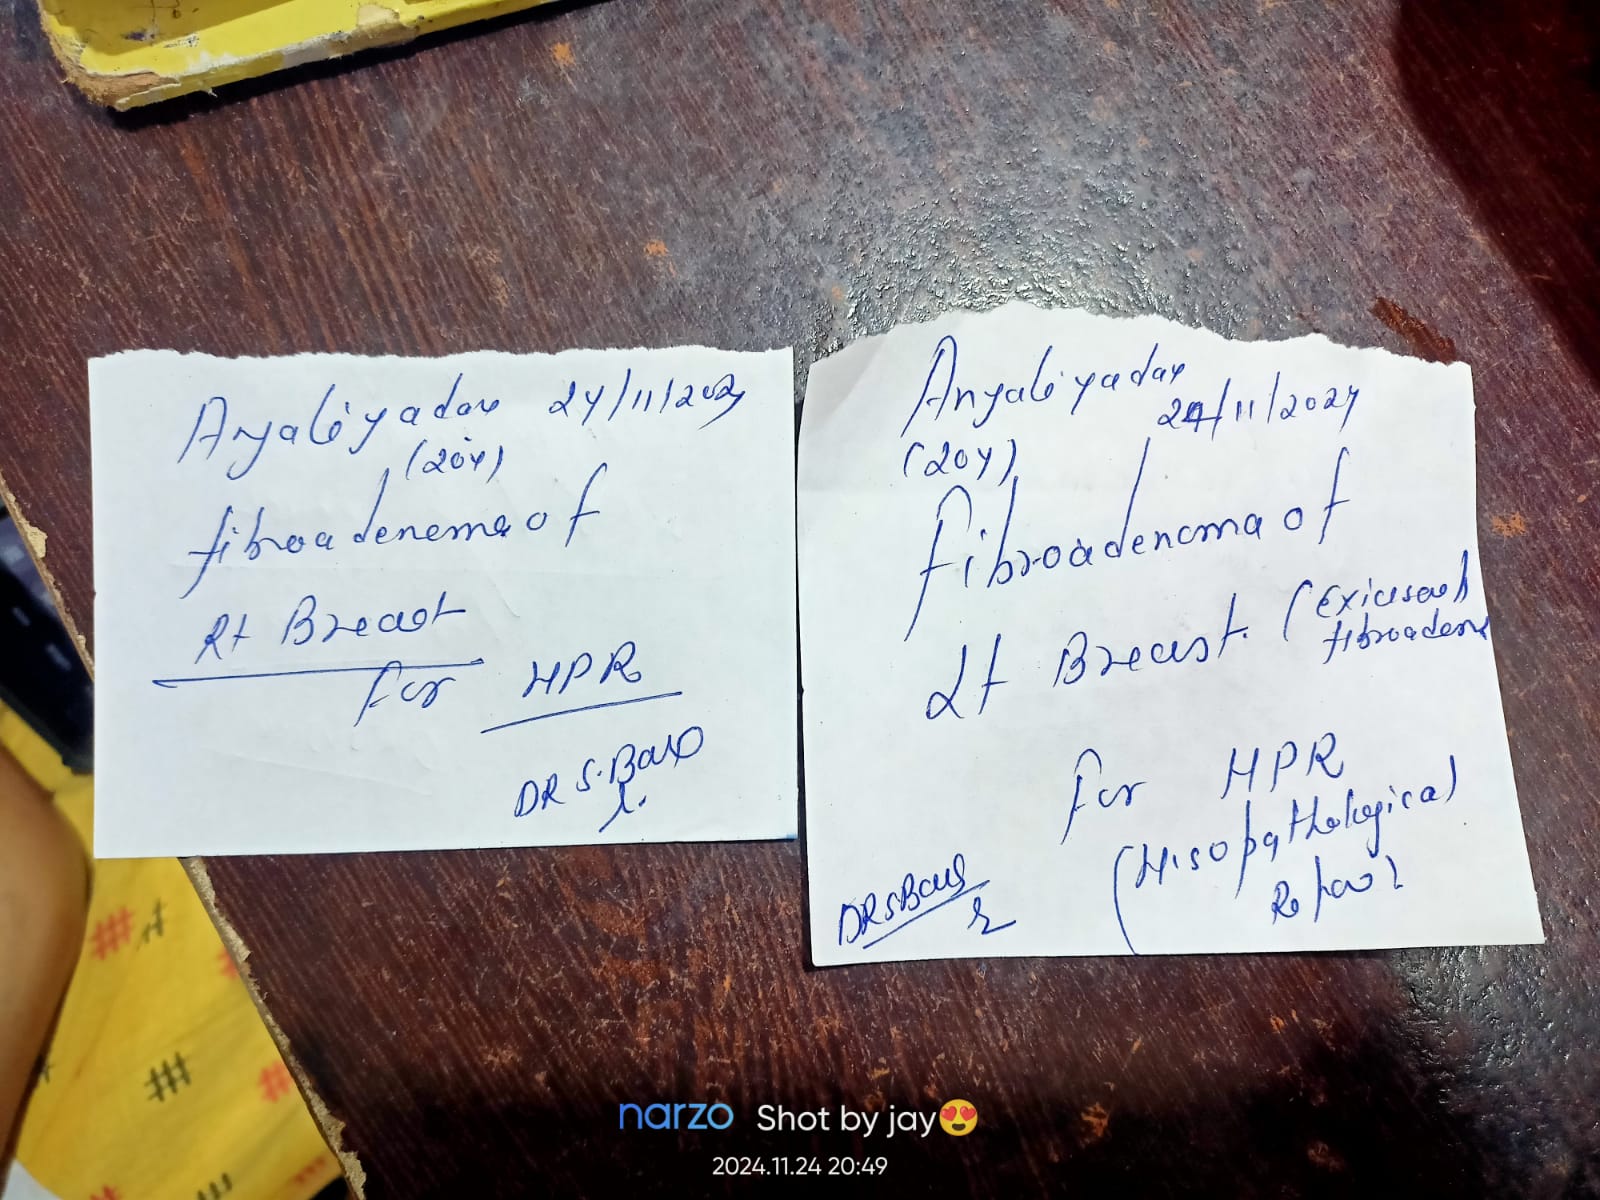 Anjali yadav 24/11/2024
(20y)
fibroadenema of
Rt Breast
for HPR
DR S. Basu
Anjali yadav
24/11/2024
(20y)
Fibroadenoma of
Lt Breast. (Exicised
fibroadeno
for HPR
(Hisopathological
Repor
DR S Basu
narzo Shot by jay😍
2024.11.24 20:49